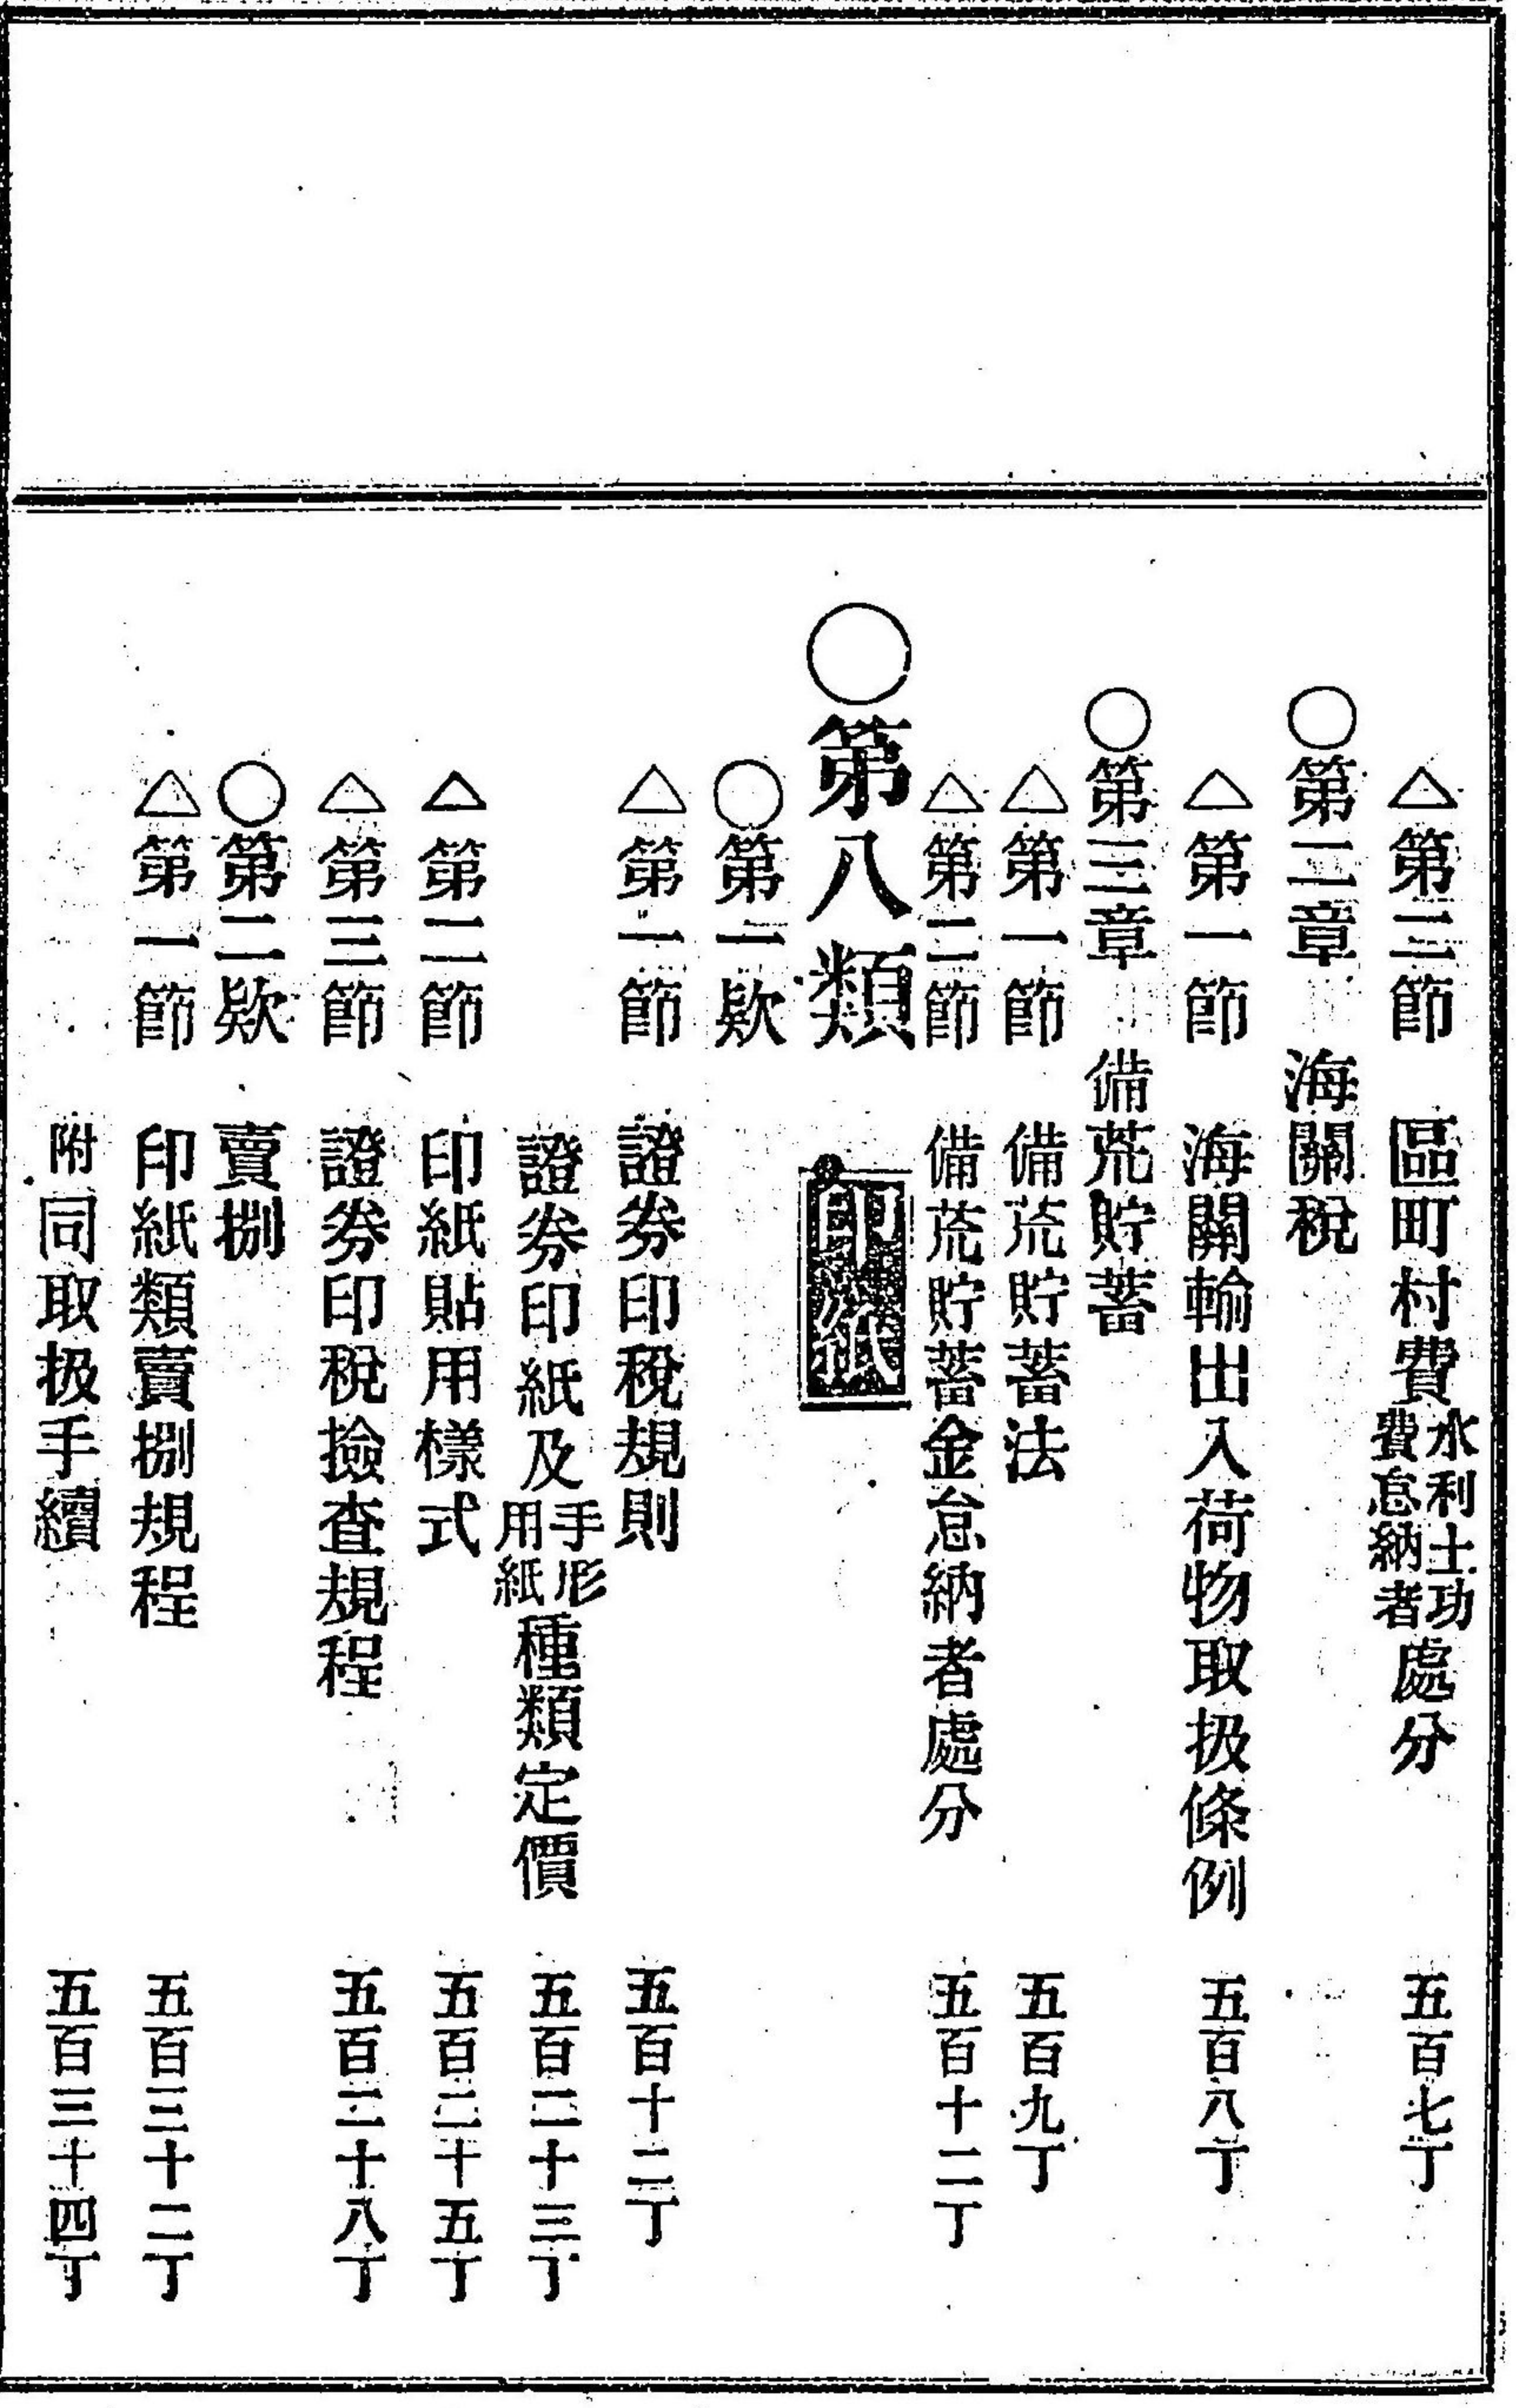 △第三節 區町村費水利土功費怠納者處分 五百七丁
○第二章 海關稅
△第一節 海關輸出入荷物取扱條例 五百八丁
○第三章 備荒貯蓄
△第一節 備荒貯蓄法 五百九丁
△第二節 備荒貯蓄金怠納者處分 五百十二丁
○第八類 印紙
○第一欵
△第一節 證券印稅規則 五百十二丁
證券印紙及手形用紙種類定價 五百二十三丁
△第二節 印紙貼用樣式 五百二十五丁
△第三節 證券印稅撿査規程 五百二十八丁
○第二欵 賣捌
△第一節 印紙類賣捌規程 五百三十二丁
附同取扱手續 五百三十四丁